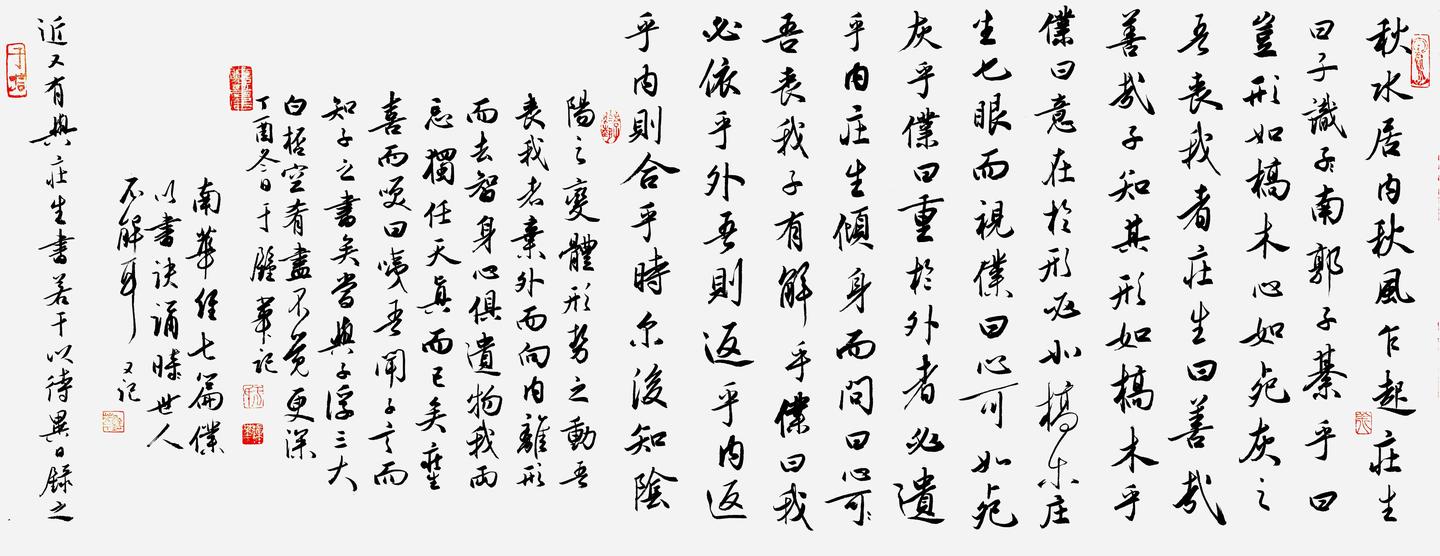 秋水居内秋風乍起莊生
曰子識子南郭子綦乎曰
豈形如槁木心如死灰之
吾喪我者莊生曰善哉
善哉子知其形如槁木乎
僕曰意在於形必小槁木庄
生也眼而視僕曰心可如死
灰乎僕曰重於外者必遺
乎内庄生傾身而問曰心可
吾喪我子有解乎僕曰我
必依乎外吾則返乎内返
乎内則合乎時尔後知陰
陽之變體形勢之動吾
喪我者棄外而向内離形
而去智身心俱遺物我兩
忘獨任天真而已矣莊生
喜而笑曰嘆吾聞子言而
知子之書矣當與子浮三大
白栝空肴盡不覺更深
丁酉冬日于龍華記
南華經七篇僕
以書訣誦時世人
不解耳 又記
近又有與莊生書若干以待異日録之